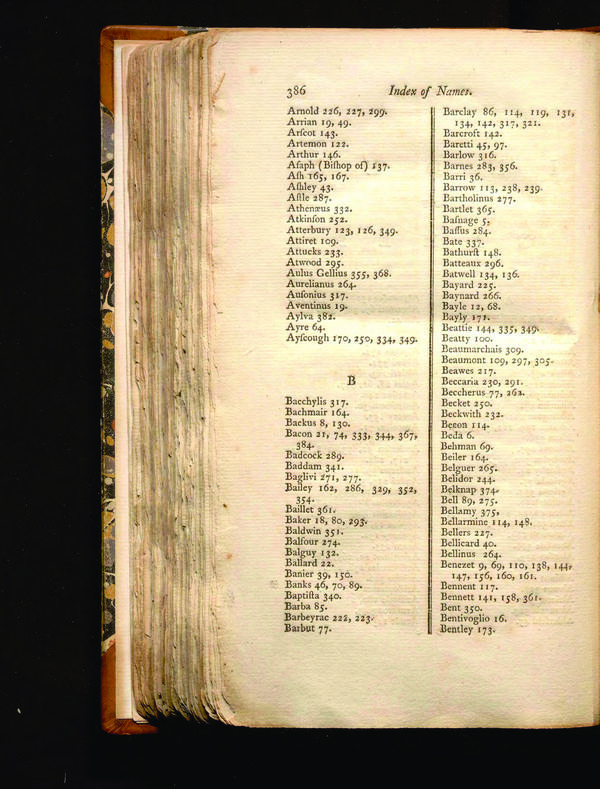 386
Index of Names.
Arnold 226, 227, 299.
Arrian 19, 49.
Arſcot 143.
Artemon 122.
Arthur 146.
Aſaph (Biſhop of) 137.
Aſh 165, 167.
Aſhley 43.
Aſtle 287.
Athenæus 332.
Atkinſon 252.
Atterbury 123, 126, 349.
Attiret 109.
Attucks 233.
Atwood 295.
Aulus Gellius 355, 368.
Aurelianus 264.
Auſonius 317.
Aventinus 19.
Aylva 382.
Ayre 64.
Ayſcough 170, 250, 334, 349.
B
Bacchylis 317.
Bachmair 164.
Backus 8, 130.
Bacon 21, 74, 333, 344, 367,
384.
Badcock 289.
Baddam 341.
Baglivi 271, 277.
Bailey 162, 286, 329, 352,
354.
Baillet 361.
Baker 18, 80, 293.
Baldwin 351.
Balfour 274.
Balguy 132.
Ballard 22.
Banier 39, 150.
Banks 46, 70, 89.
Baptiſta 340.
Barba 85.
Barbeyrac 222, 223.
Barbut 77.
Barclay 86, 114, 119, 131,
134, 142, 317, 321.
Barcroft 142.
Baretti 45, 97.
Barlow 316.
Barnes 283, 356.
Barri 36.
Barrow 113, 238, 239.
Bartholinus 277.
Bartlet 365.
Baſnage 5.
Baſſus 284.
Bate 337.
Bathurſt 148.
Batteaux 296.
Batwell 134, 136.
Bayard 225.
Baynard 266.
Bayle 12, 68.
Bayly 171.
Beattie 144, 335, 349.
Beatty 100.
Beaumarchais 309.
Beaumont 109, 297, 305.
Beawes 217.
Beccaria 230, 291.
Beccherus 77, 262.
Becket 250.
Beckwith 232.
Becon 114.
Beda 6.
Behman 69.
Beiler 164.
Belguer 265.
Belidor 244.
Belknap 374.
Bell 89, 275.
Bellamy 375,
Bellarmine 114, 148.
Bellers 227.
Bellicard 40.
Bellinus 264.
Benezet 9, 69, 110, 138, 144,
147, 156, 160, 161.
Bennent 117.
Bennett 141, 158, 361.
Bent 350.
Bentivoglio 16.
Bentley 173.